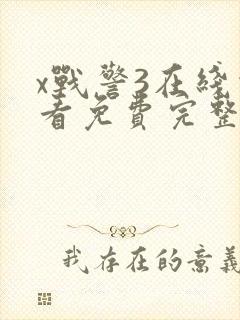 x戰警3在綫
看免費完整
我存在的意義